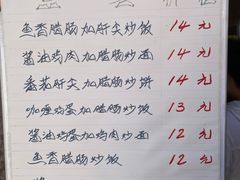 鱼香腊肠加肝尖炒饭 14元
酱油鸡肉加腊肠炒面 14元
番茄肝尖加腊肠炒饼 14元
咖喱鸡蛋加腊肠炒饭 13元
酱油鸡蛋加鸡肉炒面 12元
鱼香腊肠炒饭 12元